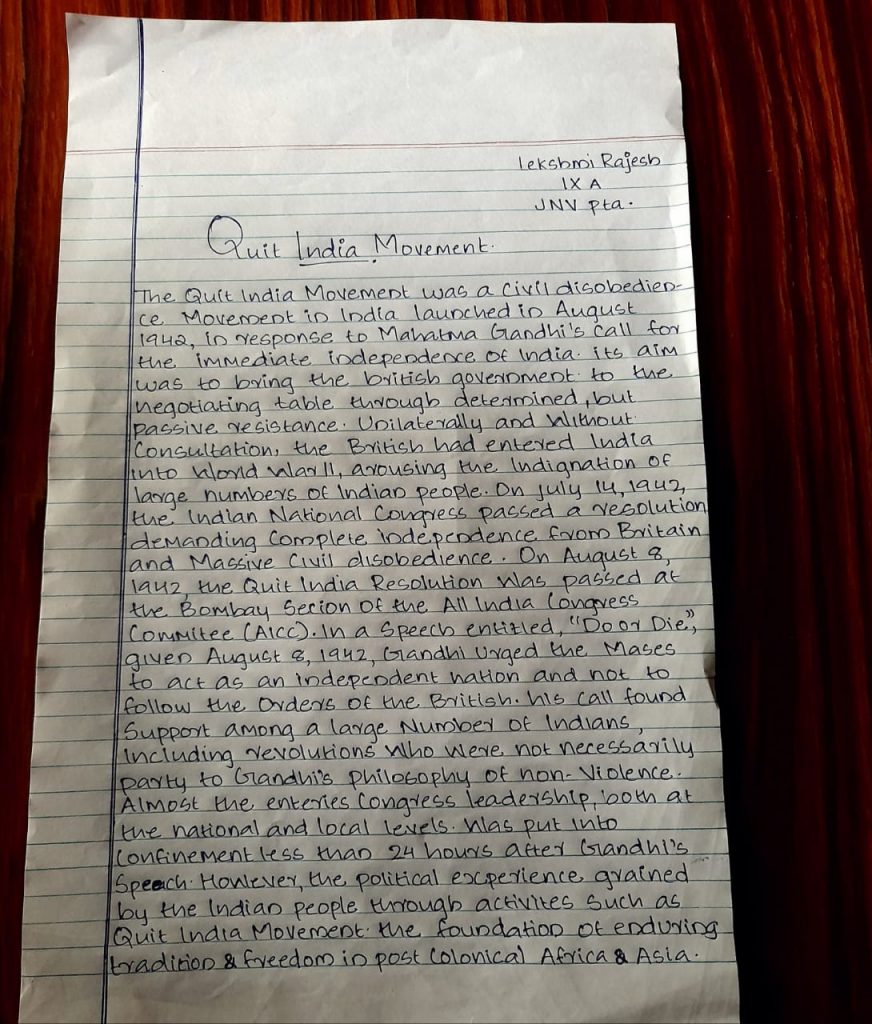 Lekshmi Rajesh
IX A
JNV Pta.
Quit India Movement.
The Quit India Movement was a civil disobedien-
ce Movement in India launched in August
1942, in response to Mahatma Gandhi's call for
the immediate independence of India. its aim
was to bring the british government to the
negotiating table through determined, but
passive resistance. Unilaterally and Without
Consultation, the British had entered India
into World War II, arousing the Indignation of
large numbers of Indian people. On July 14, 1942,
the Indian National Congress passed a resolution
demanding Complete independence from Britain
and Massive Civil disobedience. On August 8,
1942, the Quit India Resolution Was passed at
the Bombay Secion Of the All India Congress
Commitee (AICC). In a Speech entitled, "Do or Die",
given August 8, 1942, Gandhi Urged the Mases
to act as an independent nation and not to
follow the Orders of the British. his call found
Support among a large Number of Indians,
Including revolutions Who Were not necessarily
party to Gandhi's philosophy of non-Violence.
Almost the enteries Congress leadership, both at
the national and local levels. Was put Into
Confinement less than 24 hours after Gandhi's
Speech. However, the political experience grained
by the Indian people through activites Such as
Quit India Movement. the foundation of enduring
tradition & freedom in post Colonical Africa & Asia.